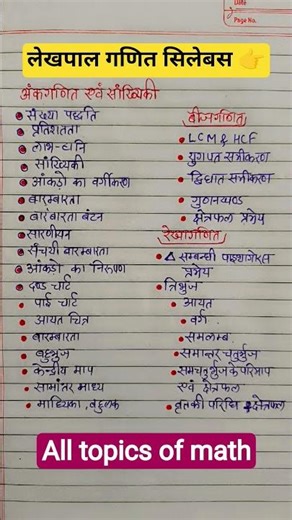 Date
Page No.
लेखपाल गणित सिलेबस 👉
अंकगणित एवं सांख्यिकी
संख्या पद्धति
प्रतिशतता
लाभ-हानि
सांख्यिकी
आंकड़ो का वर्गीकरण
बारम्बारता
बारंबारता बंटन
सारणीयन
संचयी बारम्बारता
आंकड़ो का निरूपण
दण्ड चार्ट
पाई चार्ट
आयत चित्र
बारम्बारता
बहुभुज
केन्द्रीय माप
सामांतर माध्य
माध्यिका, बहुलक
बीजगणित
LCM & HCF
युगपत समीकरण
द्विघात समीकरण
गुणनखण्ड
क्षेत्रफल प्रमेय
रेखागणित
△ सम्बन्धी पाइथागोरस
प्रमेय
त्रिभुज
आयत
वर्ग
समलम्ब
समान्तर चतुर्भुज
समचतुर्भुज के परिमाप
एवं क्षेत्रफल
वृत की परिधि & क्षेत्रफल
All topics of math